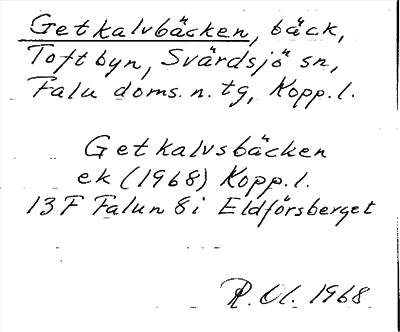 Getkalvbäcken, bäck,
Toftbyn, Svärdsjö sn,
Falu doms. n. tg, Kopp. l.
Getkalvsbäcken
ek (1968) Kopp. l.
13 F Falun 8 i Eldförsberget
R. Ol. 1968